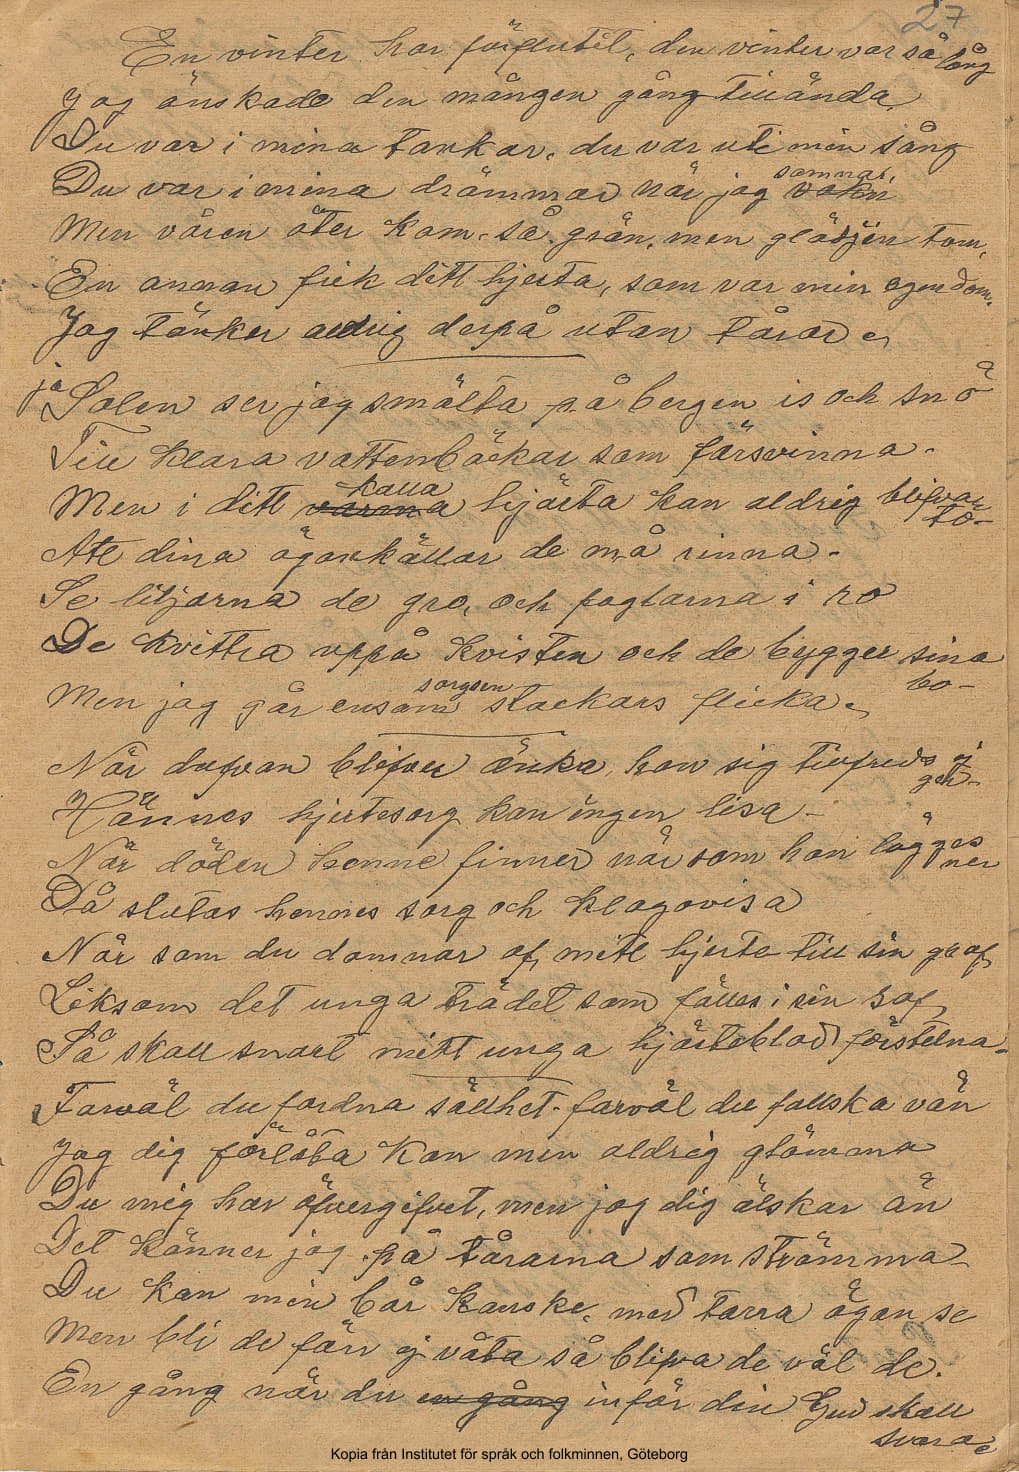 27
En vinter har förflutit, den vinter var så lång
Jag önskade den mången gång till ända,
Du var i mina tankar, du var uti min sång
Du var i mina drömmar när jag vakn somnat,
Men våren åter kom, så grön, men glädjen tom,
En annan fick ditt hjerta, som var min egendom.
Jag tänker aldrig derpå utan tårar
ja Solen ser jag smälta på bergen is och snö
Till klara vattenbäckar som försvinna.
Men i ditt varma kalla hjärta kan aldrig blifva tö-
Att dina ögonkällor de må rinna-
Se liljorna de gro, och foglarna i ro
De kvittra uppå kvisten och de bygger sina bo-
Men jag går ensam sorgsen stackars flicka
När dufvan blifver änka, hon sig tillfreds ej ger-
Hännes hjertesorg kan ingen lisa-
När döden henne finner när som hon lägges ner
Då slutas hennes sorg och klagovisa
När som du domnar af, mitt hjerta till sin graf
Liksom det unga trädet som fälles i sin saf,
Så skall snart mitt unga hjärteblod förstelna-
Farväl du fordna sällhet, farväl du fallska vän
Jag dig förlåta kan men aldrig glömma
Du mig har öfvergifvet, men jag dig älskar än
Det känner jag på tårarna som strömma
Du kan min bår kanske, med torra ögon se
Men bli de förr ej våta så blifva de väl de.
En gång när du en gång inför din Gud skall svara
Kopia från Institutet för språk och folkminnen, Göteborg